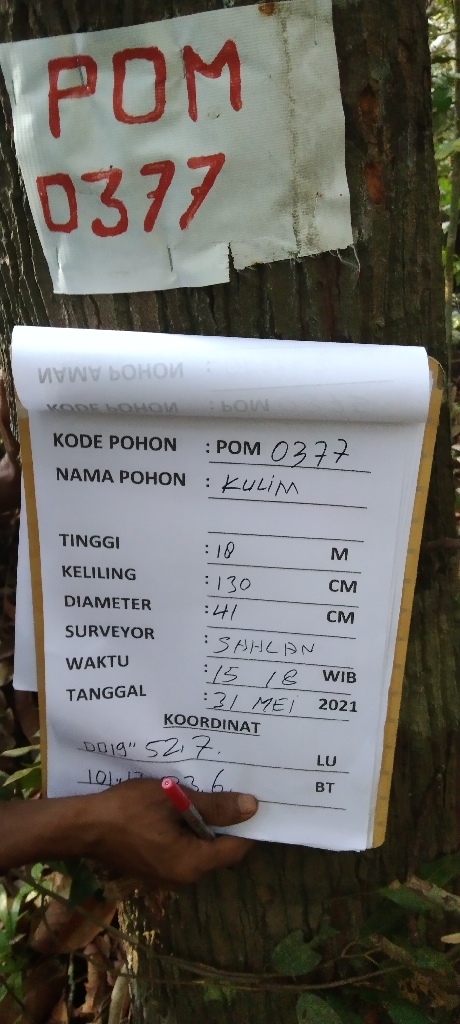 POM
0377
NAMA POHON :
KODE POHON : POM
KODE POHON : POM 0377
NAMA POHON : KULIM
TINGGI : 18 M
KELILING : 130 CM
DIAMETER : 41 CM
SURVEYOR : SAHLAN
WAKTU : 15 18 WIB
TANGGAL : 31 MEI 2021
KOORDINAT
0019" 52,7. LU
BT